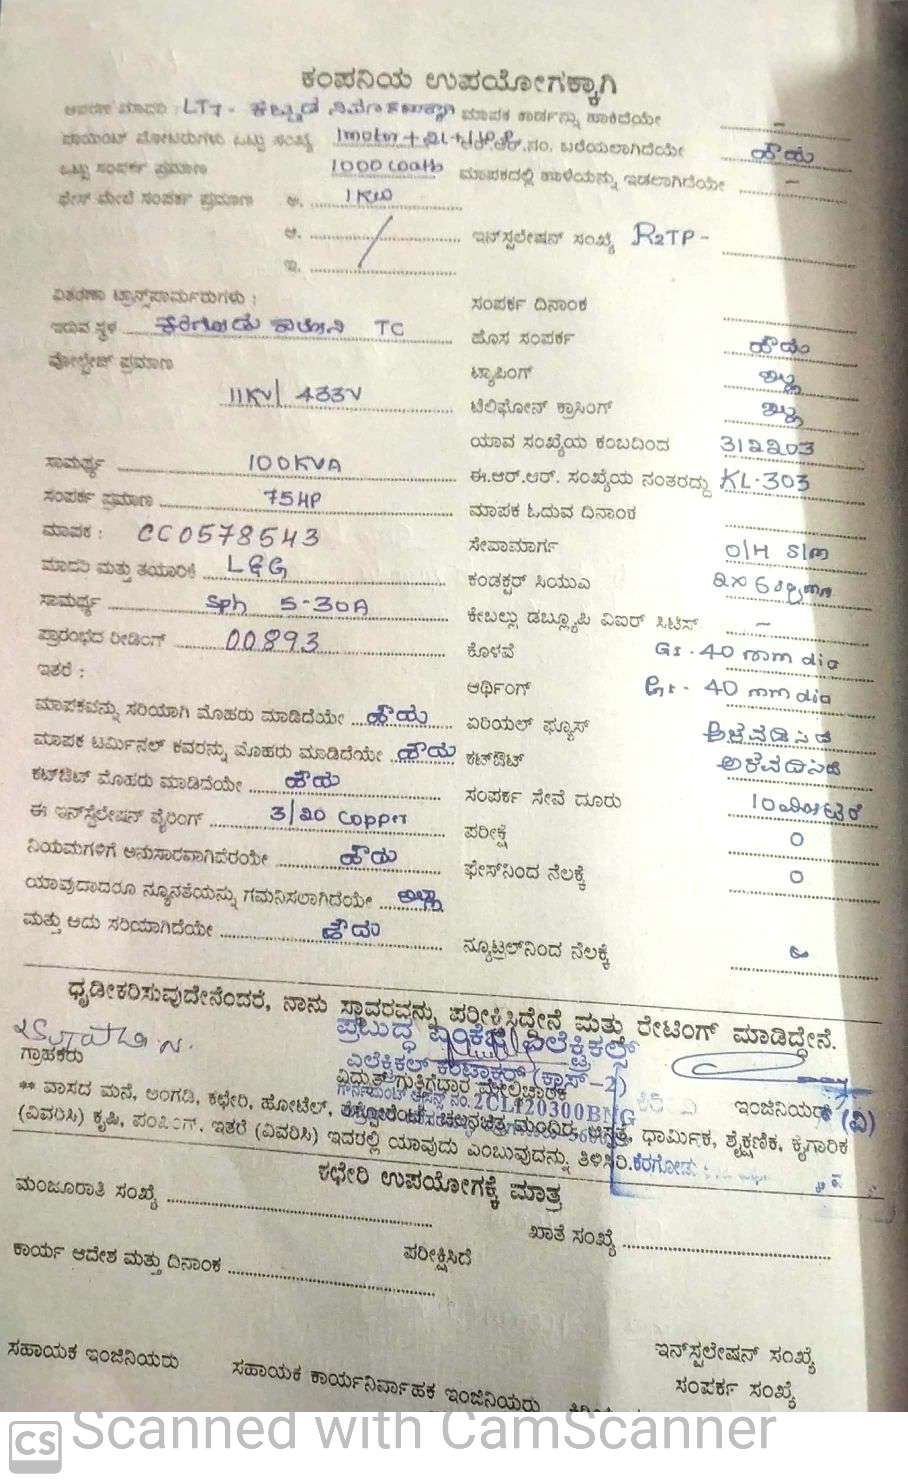 ಕಂಪನಿಯ ಉಪಯೋಗಕ್ಕಾಗಿ
ಮಾದರಿ : LT7 - ಕಟ್ಟಡ ಮಾಪಕ ಕಾರ್ಡನ್ನು ಹಾಕಿದೆಯೇ -
ಪಾಯಿಂಟ್ ಮೋಟರುಗಳು ಒಟ್ಟು ಸಂಖ್ಯೆ 1motor + 2L + ಆರ್.ಆರ್.ನಂ. ಬರೆಯಲಾಗಿದೆಯೇ ಹೌದು
ಒಟ್ಟು ಸಂಪರ್ಕ ಪ್ರಮಾಣ 1000 watts ಮಾಪಕದಲ್ಲಿ ಹಾಳೆಯನ್ನು ಇಡಲಾಗಿದೆಯೇ -
ಫೇಸ್ ಮೇಲೆ ಸಂಪರ್ಕ ಪ್ರಮಾಣ ಅ. 1KW
ಆ. ಇನ್‌ಸ್ಟಲೇಷನ್ ಸಂಖ್ಯೆ R2TP -
ಇ.
ವಿತರಣಾ ಟ್ರಾನ್ಸ್‌ಫಾರ್ಮರುಗಳು : ಸಂಪರ್ಕ ದಿನಾಂಕ
ಇರುವ ಸ್ಥಳ ಕೆರಗೋಡು ಕಾಲೋನಿ TC ಹೊಸ ಸಂಪರ್ಕ ಹೌದು
ವೋಲ್ಟೇಜ್ ಪ್ರಮಾಣ ಟ್ಯಾಪಿಂಗ್ ಇಲ್ಲ
11KV/433V ಟೆಲಿಫೋನ್ ಕ್ರಾಸಿಂಗ್ ಇಲ್ಲ
ಯಾವ ಸಂಖ್ಯೆಯ ಕಂಬದಿಂದ 312203
ಸಾಮರ್ಥ್ಯ 100KVA ಈ.ಆರ್.ಆರ್. ಸಂಖ್ಯೆಯ ನಂತರದ್ದು KL-303
ಸಂಪರ್ಕ ಪ್ರಮಾಣ 75HP ಮಾಪಕ ಓದುವ ದಿನಾಂಕ
ಮಾಪಕ : CC0578543 ಸೇವಾಮಾರ್ಗ O/H S/m
ಮಾದರಿ ಮತ್ತು ತಯಾರಿಕೆ L&G ಕಂಡಕ್ಟರ್ ಸಿಯುಎ 2x6sqmm
ಸಾಮರ್ಥ್ಯ Sph 5-30A ಕೇಬಲ್ಲು ಡಬ್ಲ್ಯೂಪಿ ವಿಐಆರ್ ಸಿಟಿಸ್ -
ಪ್ರಾರಂಭದ ರೀಡಿಂಗ್ 00893 ಕೊಳವೆ GI - 40 mm dia
ಇತರೆ : ಅರ್ಥಿಂಗ್ GI - 40 mm dia
ಮಾಪಕವನ್ನು ಸರಿಯಾಗಿ ಮೊಹರು ಮಾಡಿದೆಯೇ ಹೌದು ಏರಿಯಲ್ ಫ್ಯೂಸ್ ಅಳವಡಿಸಿದೆ
ಮಾಪಕ ಟರ್ಮಿನಲ್ ಕವರನ್ನು ಮೊಹರು ಮಾಡಿದೆಯೇ ಹೌದು ಕಟ್‌ಔಟ್ ಅಳವಡಿಸಿದೆ
ಕಟ್‌ಔಟ್ ಮೊಹರು ಮಾಡಿದೆಯೇ ಹೌದು ಸಂಪರ್ಕ ಸೇವೆ ದೂರು 10 ಮೀಟರ್
ಈ ಇನ್‌ಸ್ಟೆಲೇಷನ್ ವೈರಿಂಗ್ 3/20 Copper ಪರೀಕ್ಷೆ 0
ನಿಯಮಗಳಿಗೆ ಅನುಸಾರವಾಗಿವೆರಯೇ ಹೌದು ಫೇಸ್‌ನಿಂದ ನೆಲಕ್ಕೆ 0
ಯಾವುದಾದರೂ ನ್ಯೂನತೆಯನ್ನು ಗಮನಿಸಲಾಗಿದೆಯೇ ಇಲ್ಲ
ಮತ್ತು ಅದು ಸರಿಯಾಗಿದೆಯೇ ಹೌದು ನ್ಯೂಟ್ರಲ್‌ನಿಂದ ನೆಲಕ್ಕೆ
ಧೃಡೀಕರಿಸುವುದೇನೆಂದರೆ, ನಾನು ಸ್ಥಾವರವನ್ನು ಪರೀಕ್ಷಿಸಿದ್ದೇನೆ ಮತ್ತು ರೇಟಿಂಗ್ ಮಾಡಿದ್ದೇನೆ.
ಪ್ರಬುದ್ಧ ಎಲೆಕ್ಟ್ರಿಕಲ್ಸ್
ಗ್ರಾಹಕರು ಎಲೆಕ್ಟ್ರಿಕಲ್ ಕಂಟ್ರಾಕ್ಟರ್ (ಕ್ಲಾಸ್-2)
ವಿದ್ಯುತ್ ಗುತ್ತಿಗೆದಾರ ಮೇಲ್ವಿಚಾರಕ ಇಂಜಿನಿಯರ್ (ವಿ)
ನಂ.2CL120300BNG
** ವಾಸದ ಮನೆ, ಅಂಗಡಿ, ಕಛೇರಿ, ಹೋಟೆಲ್, ಚಲನಚಿತ್ರ ಮಂದಿರ, ಆಸ್ಪತ್ರೆ, ಧಾರ್ಮಿಕ, ಶೈಕ್ಷಣಿಕ, ಕೈಗಾರಿಕ
(ವಿವರಿಸಿ) ಕೃಷಿ, ಪಂಪಿಂಗ್, ಇತರೆ (ವಿವರಿಸಿ) ಇದರಲ್ಲಿ ಯಾವುದು ಎಂಬುವುದನ್ನು ತಿಳಿಸಿರಿ. ಕೆರಗೋಡು
ಕಛೇರಿ ಉಪಯೋಗಕ್ಕೆ ಮಾತ್ರ
ಮಂಜೂರಾತಿ ಸಂಖ್ಯೆ ಖಾತೆ ಸಂಖ್ಯೆ
ಕಾರ್ಯ ಆದೇಶ ಮತ್ತು ದಿನಾಂಕ ಪರೀಕ್ಷಿಸಿದೆ
ಸಹಾಯಕ ಇಂಜಿನಿಯರು ಸಹಾಯಕ ಕಾರ್ಯನಿರ್ವಾಹಕ ಇಂಜಿನಿಯರು ಇನ್‌ಸ್ಟಲೇಷನ್ ಸಂಖ್ಯೆ
ಸಂಪರ್ಕ ಸಂಖ್ಯೆ
CS Scanned with CamScanner